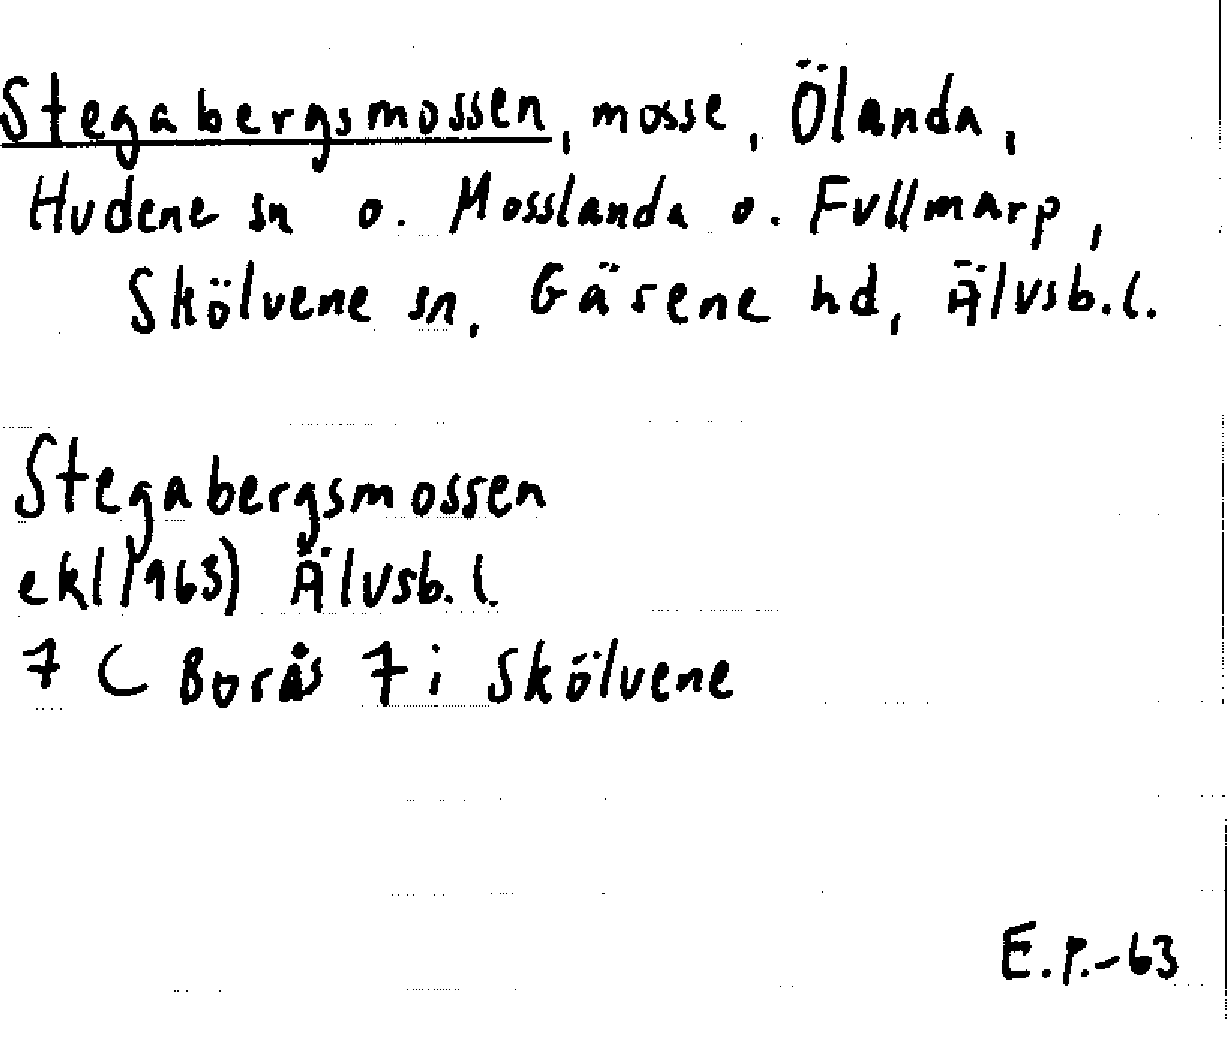 Stegabergsmossen, mosse, Ölanda,
Hudene sn o. Mosslanda o. Fullmarp,
Skölvene sn, Gäsene hd, Älvsb.l.
Stegabergsmossen
ekl(1963) Älvsb.l.
7 C Borås 7 i Skölvene
E.P.-63